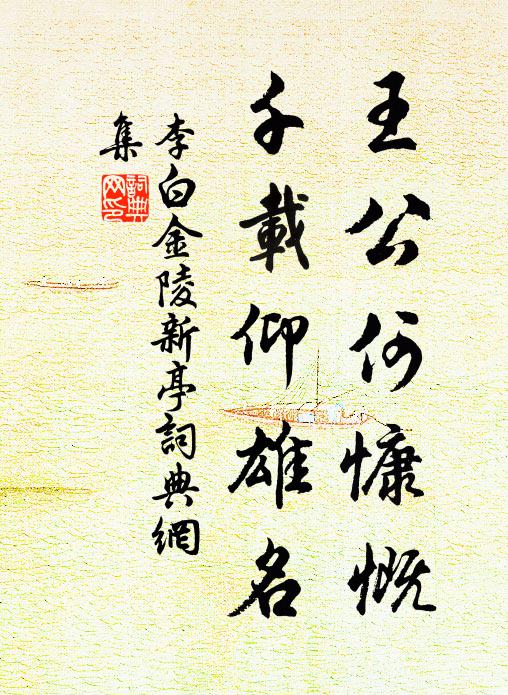 王公何慷慨
千載仰雄名
李白金陵新亭詞典網
集
詞典
网印